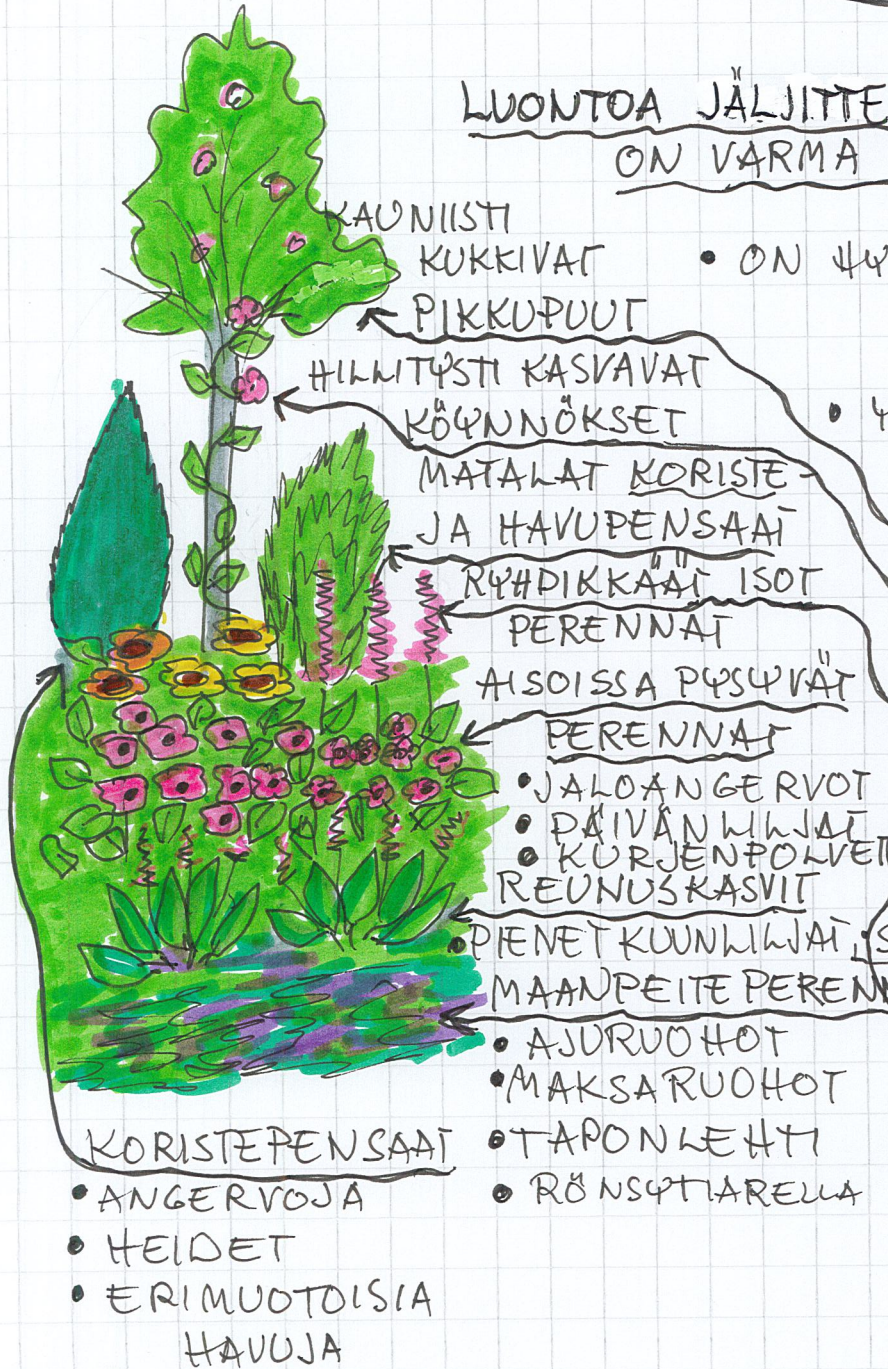 LUONTOA JÄLJITTE
ON VARMA
KAUNIISTI
KUKKIVAT
• ON HY
PIKKUPUUT
HILLITYSTI KASVAVAT
KÖYNNÖKSET
• Y
MATALAT KORISTE-
JA HAVUPENSAAT
RYHDIKKÄÄT ISOT
PERENNAT
AISOISSA PYSYVÄT
PERENNAT
• JALOANGERVOT
• PÄIVÄNLILJAT
• KURJENPOLVET
REUNUSKASVIT
• PIENET KUUNLILJAT, S
MAANPEITEPEREN
• AJURUOHOT
• MAKSARUOHOT
• TAPONLEHTI
• RÖNSYTIARELLA
KORISTEPENSAAT
• ANGERVOJA
• HEIDET
• ERIMUOTOISIA
HAVUJA